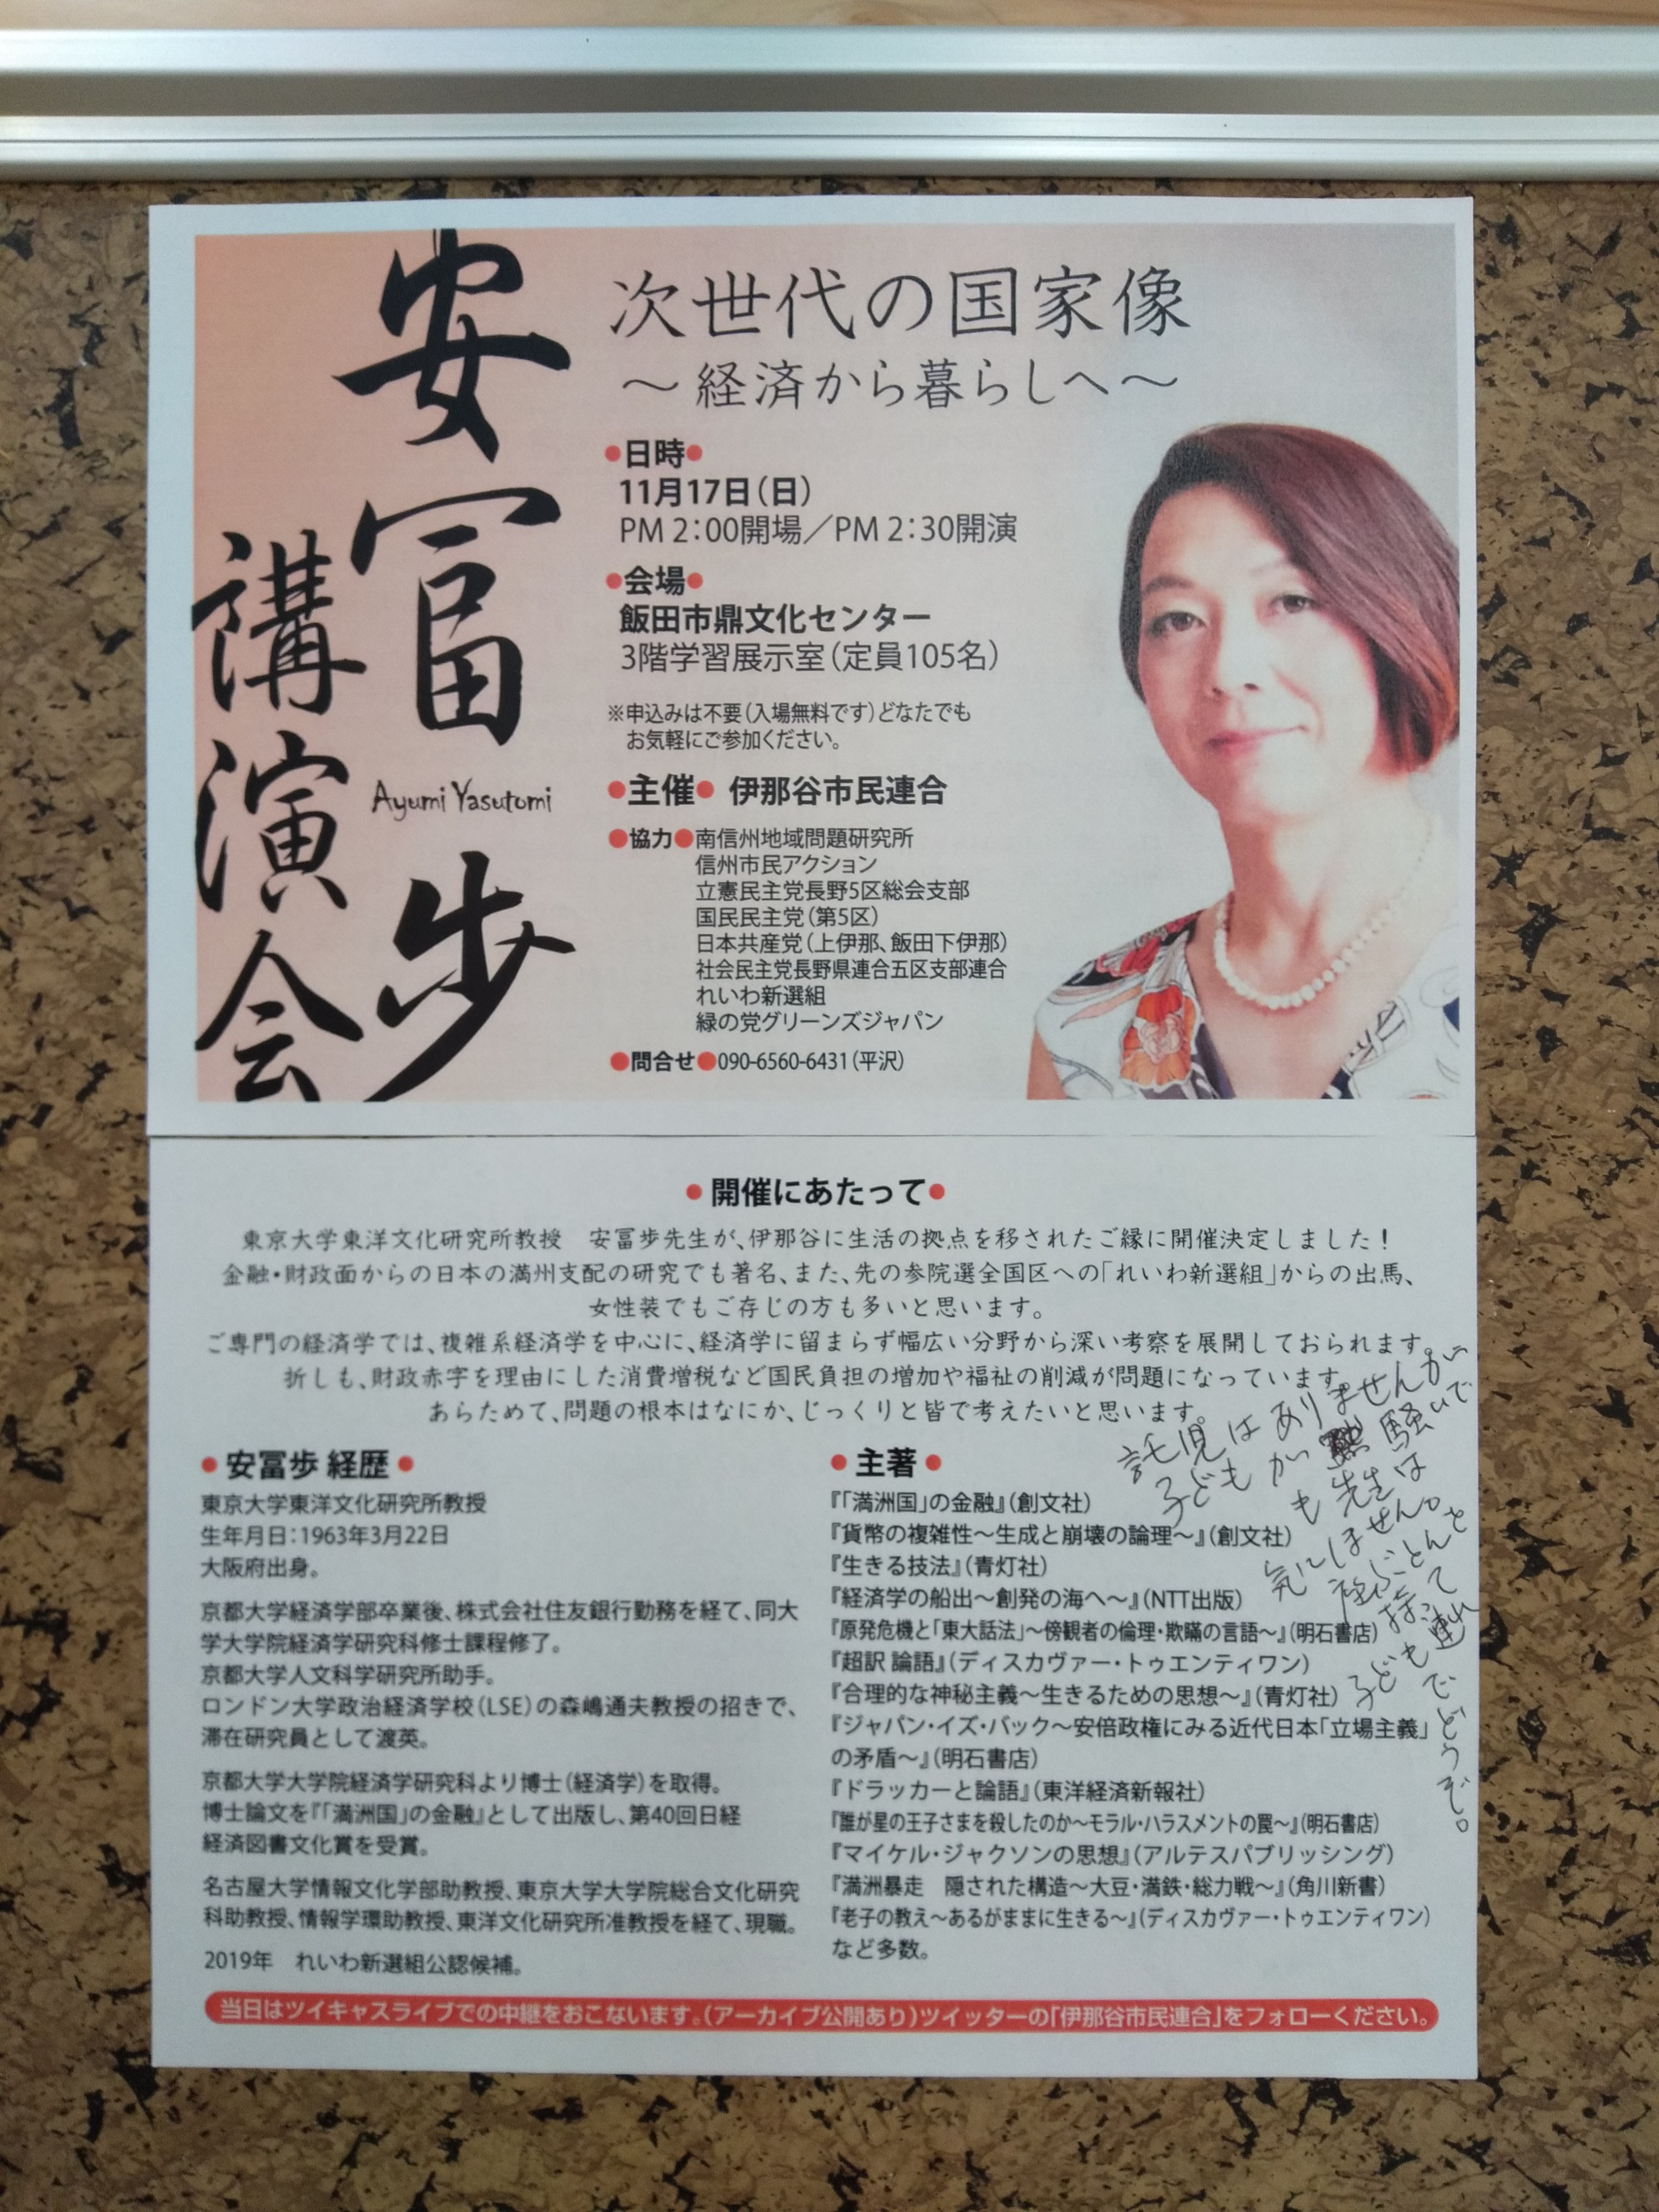 安冨歩
講演会
Ayumi Yasutomi
次世代の国家像
～経済から暮らしへ～
●日時●
11月17日(日)
PM 2:00開場／PM 2:30開演
●会場●
飯田市鼎文化センター
3階学習展示室(定員105名)
※申込みは不要(入場無料です)どなたでも
お気軽にご参加ください。
●主催● 伊那谷市民連合
●協力●南信州地域問題研究所
信州市民アクション
立憲民主党長野5区総会支部
国民民主党(第5区)
日本共産党(上伊那、飯田下伊那)
社会民主党長野県連合五区支部連合
れいわ新選組
緑の党グリーンズジャパン
●問合せ●090-6560-6431(平沢)
●開催にあたって●
東京大学東洋文化研究所教授　安冨歩先生が、伊那谷に生活の拠点を移されたご縁に開催決定しました！
金融・財政面からの日本の満州支配の研究でも著名、また、先の参院選全国区への「れいわ新選組」からの出馬、
女性装でもご存じの方も多いと思います。
ご専門の経済学では、複雑系経済学を中心に、経済学に留まらず幅広い分野から深い考察を展開しておられます。
折しも、財政赤字を理由にした消費増税など国民負担の増加や福祉の削減が問題になっています。
あらためて、問題の根本はなにか、じっくりと皆で考えたいと思います。
●安冨歩 経歴●
東京大学東洋文化研究所教授
生年月日：1963年3月22日
大阪府出身。
京都大学経済学部卒業後、株式会社住友銀行勤務を経て、同大
学大学院経済学研究科修士課程修了。
京都大学人文科学研究所助手。
ロンドン大学政治経済学校(LSE)の森嶋通夫教授の招きで、
滞在研究員として渡英。
京都大学大学院経済学研究科より博士(経済学)を取得。
博士論文を『「満洲国」の金融』として出版し、第40回日経
経済図書文化賞を受賞。
名古屋大学情報文化学部助教授、東京大学大学院総合文化研究
科助教授、情報学環助教授、東洋文化研究所准教授を経て、現職。
2019年　れいわ新選組公認候補。
●主著●
『「満洲国」の金融』(創文社)
『貨幣の複雑性～生成と崩壊の論理～』(創文社)
『生きる技法』(青灯社)
『経済学の船出～創発の海へ～』(NTT出版)
『原発危機と「東大話法」～傍観者の倫理・欺瞞の言語～』(明石書店)
『超訳 論語』(ディスカヴァー・トゥエンティワン)
『合理的な神秘主義～生きるための思想～』(青灯社)
『ジャパン・イズ・バック～安倍政権にみる近代日本「立場主義」
の矛盾～』(明石書店)
『ドラッカーと論語』(東洋経済新報社)
『誰が星の王子さまを殺したのか～モラル・ハラスメントの罠～』(明石書店)
『マイケル・ジャクソンの思想』(アルテスパブリッシング)
『満洲暴走　隠された構造～大豆・満鉄・総力戦～』(角川新書)
『老子の教え～あるがままに生きる～』(ディスカヴァー・トゥエンティワン)
など多数。
託児はありませんが
子どもが騒いで
も先生は
気にしません。
座ぶとんと
持って
子ども連れ
でどうぞ。
当日はツイキャスライブでの中継をおこないます。(アーカイブ公開あり)ツイッターの「伊那谷市民連合」をフォローください。